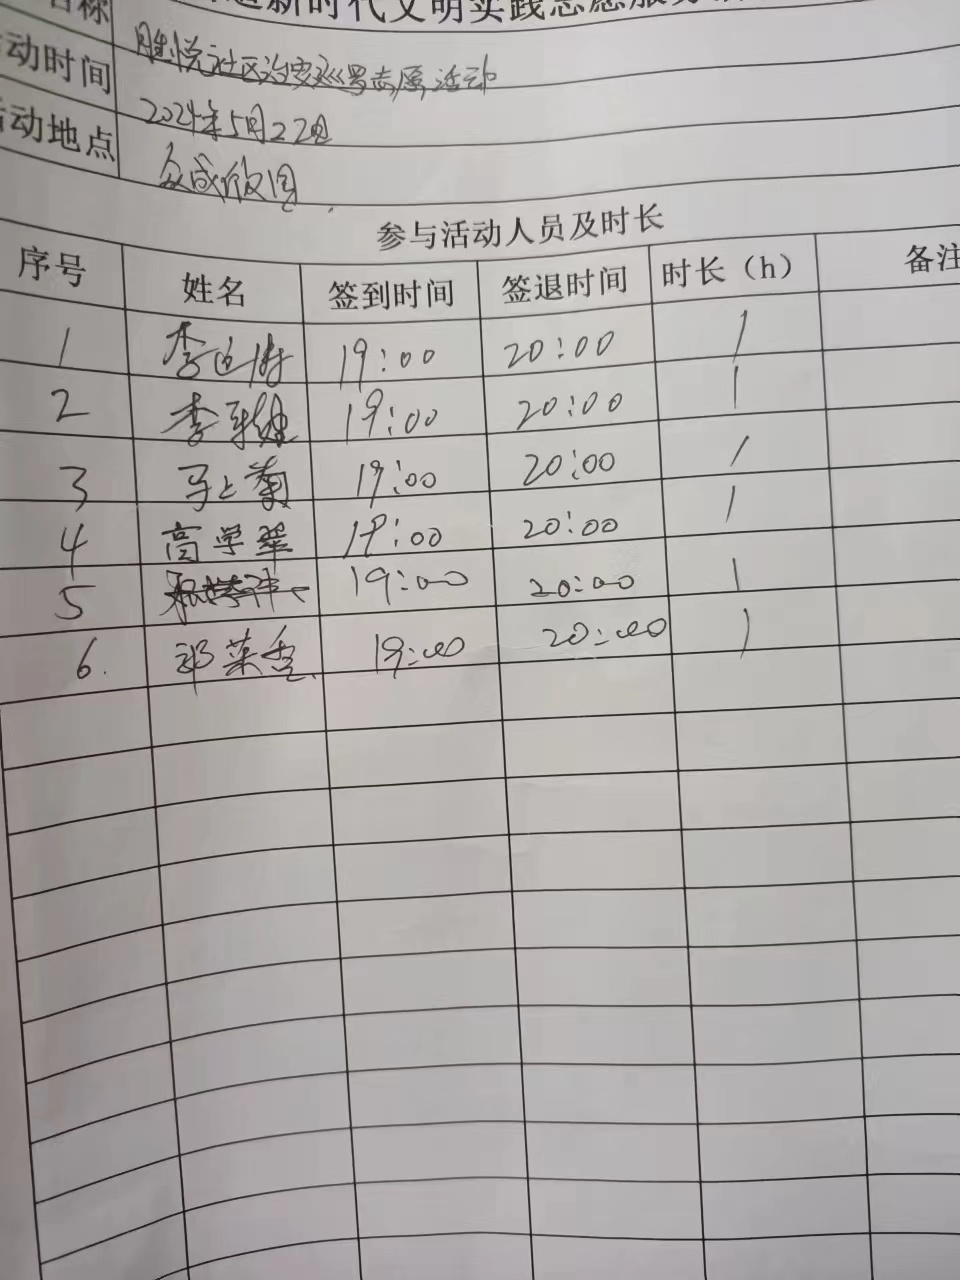 新时代文明实践志愿服务
名称 胜悦社区治安巡逻志愿活动
活动时间 2024年5月22日
活动地点 众成欣园
参与活动人员及时长
序号 姓名 签到时间 签退时间 时长（h） 备注
1 李 19:00 20:00 1
2 李 19:00 20:00 1
3 马上菊 19:00 20:00 1
4 高学翠 19:00 20:00 1
5 19:00 20:00 1
6. 邓菜香 19:00 20:00 1